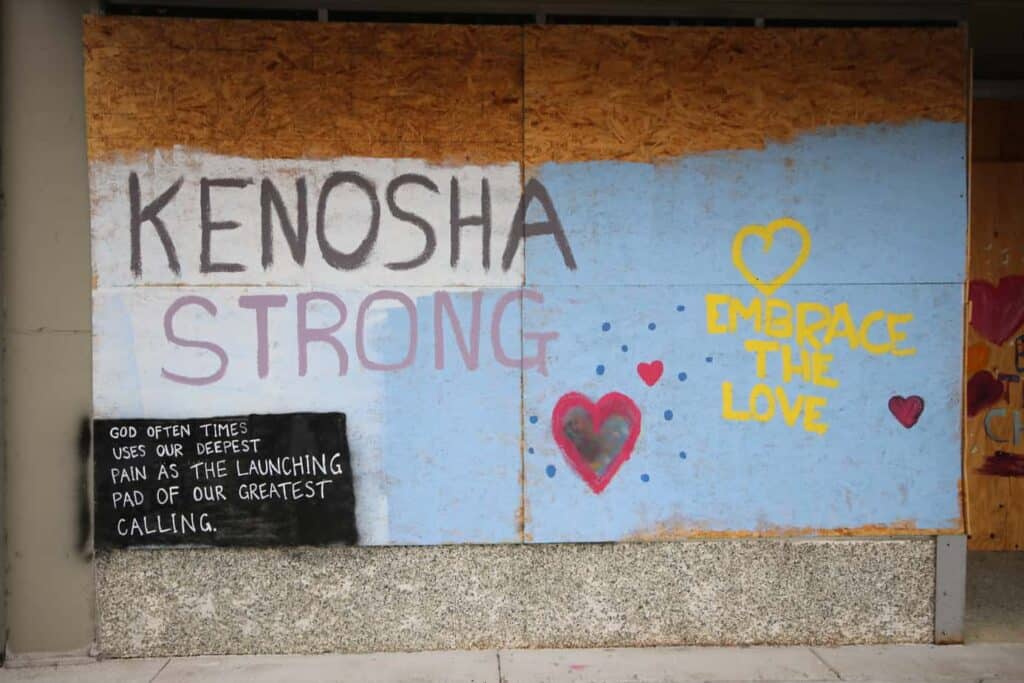 KENOSHA
STRONG
EMBRACE
THE
LOVE
GOD OFTEN TIMES
USES OUR DEEPEST
PAIN AS THE LAUNCHING
PAD OF OUR GREATEST
CALLING.